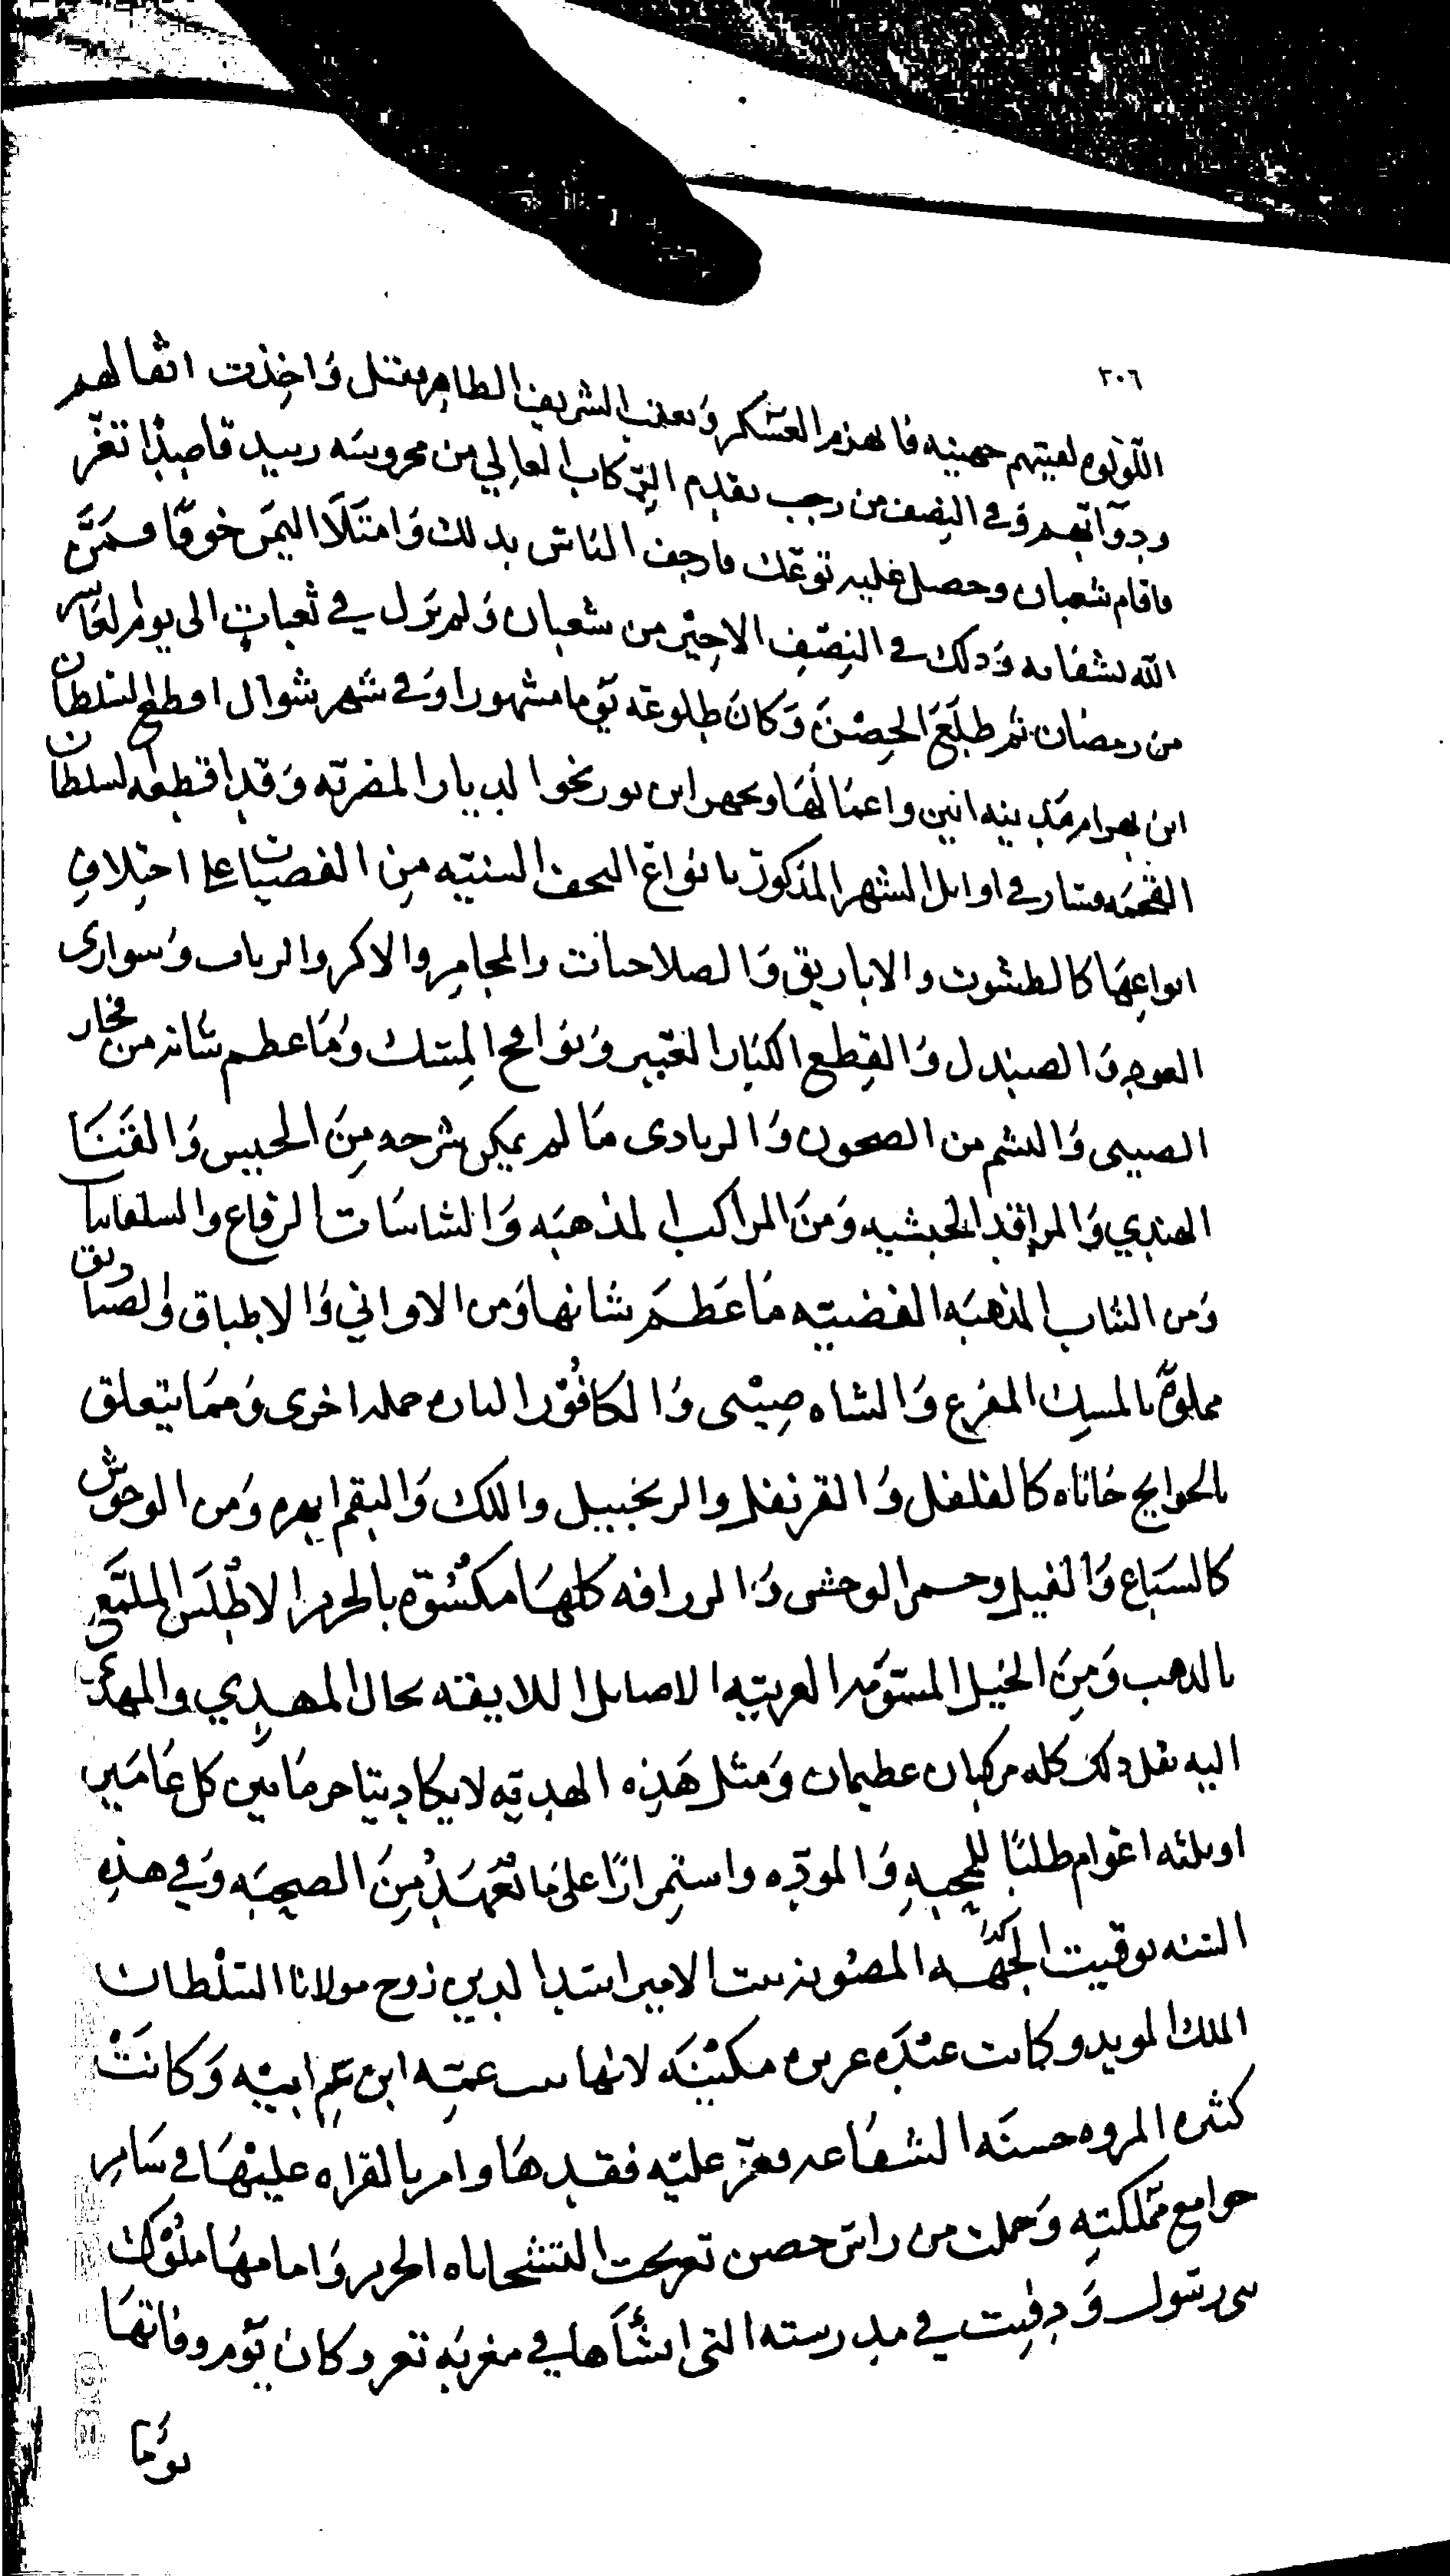 ٣٠٦
اللولوه لقيتهم جهينه فانهزم العسكر وتعنت الشريف الطاهر فقتل واخذت اثقالهم
ودوابهم وفي النصف من رجب تقدم الركاب العالي من محروسه زبيد قاصدا تعز
فاقام شعبان وحصل عليه توعك فارجف الناس بذلك وامتلا اليمن خوفا فمن
الله بشفايه وذلك في النصف الاخير من شعبان ولم يزل في ثعبات الى يوم العاشر
من رمضان ثم طلع الحصن وكان طلوعه يوما مشهورا وفي شهر شوال اقطع السلطان
ابن بهرام مدينه ابين واعمالها وتجهز ابن نور نحوا لديار المضريه وقد اقطعه السلطان
القحمه فسار في اوايل الشهر المذكور بانواع التحف السنيه من الفضيات على اختلاف
انواعها كالطشوت والاباريق والصلاحيات والمجامر والاكر والزباب وسواري
العود والصندل والقطع الكبار العنبر ونوافج المسك وما عظم شانه من فخار
الصيني واليشم من الصحون والزبادي ما لم يمكن شرحه من الحبيس والقنا
الهندي والمراقد الحبشيه ومن المراكب المذهبه والشاشات الرفاع
ومن الثياب المذهبه الفضيه ما عظم شانها ومن الاواني والاطباق والصناديق
مملوة بالمسك المفرع والشاه صيني والكافور الباره جمله اخرى ومما يتعلق
بالحوايج خاناه كالفلفل والقرنفل والزنجبيل واللك والبقم ومن الوحوش
كالسباع والفيل وحمر الوحشي والزرافه كلها مكسوة بالحرير الاطلس الملمع
بالذهب ومن الخيل المسومه العربيه الاصايل اللايقه بحال المهدي والمهدى
اليه نقل ذلك كله مركبان عظيمان ومثل هذه الهديه لا يكاد يتاخر ما بين كل عامين
او ثلثه اعوام طلبا للمحبه والموده واستمرارا على ما تعهد من الصحبه وفي هذه
السنه توفيت الجهه المصونه بنت الامير اسد الدين زوج مولانا السلطان
الملك المويد وكانت عنده عزيزه مكينه لانها بنت عمته ابن عم ابيه وكانت
كثيره المروه حسنه الشفاعه فعز عليه فقدها وامر بالقراه عليها في ساير
جوامع مملكته وحملت من راس حصن تعز تحت التشحاناه الحرير وامامها ملوك
بني رسول ودفنت في مدرسته التي انشاها في مغربه تعز وكان يوم وفاتها
يوما